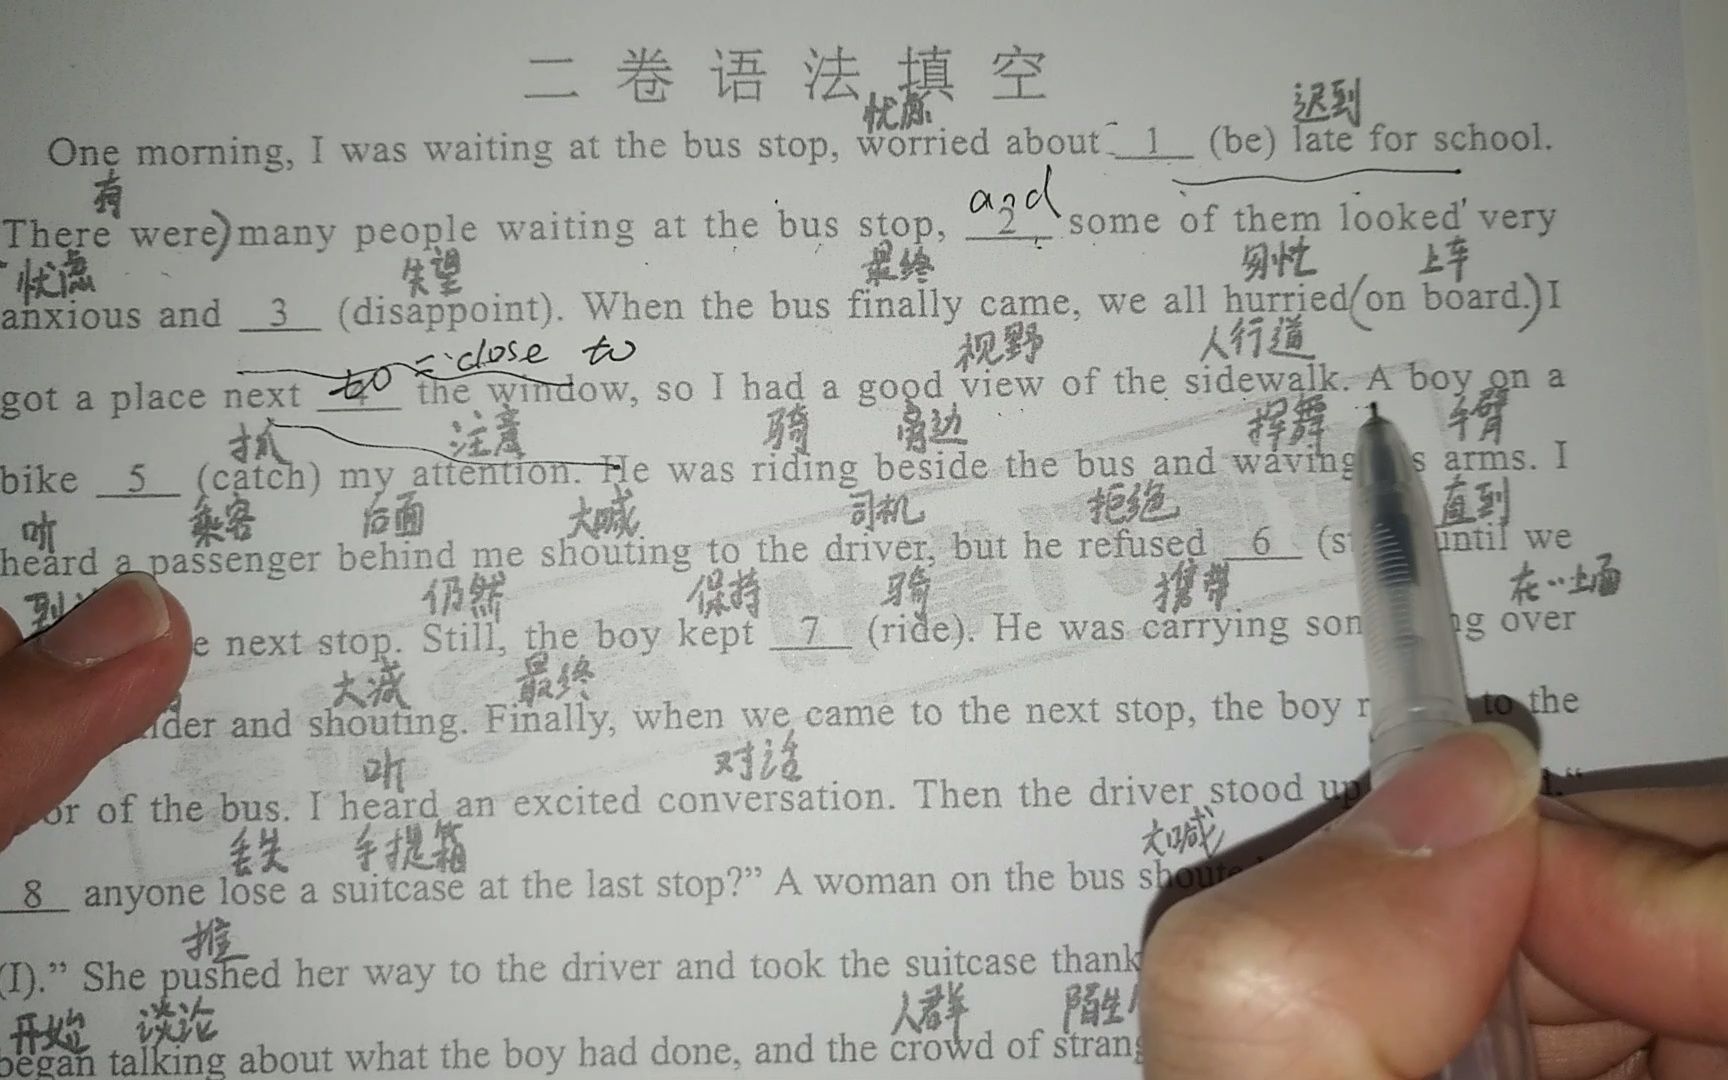 二卷语法填空
忧虑 迟到
One morning, I was waiting at the bus stop, worried about 1 (be) late for school.
有 and
There were) many people waiting at the bus stop, 2 some of them looked very
忧虑 失望 最终 匆忙 上车
anxious and 3 (disappoint). When the bus finally came, we all hurried (on board.) I
= close to 视野 人行道
got a place next to the window, so I had a good view of the sidewalk. A boy on a
抓 注意 骑 旁边 挥舞 手臂
bike 5 (catch) my attention. He was riding beside the bus and waving arms. I
听 乘客 后面 大喊 司机 拒绝 直到
heard a passenger behind me shouting to the driver, but he refused 6 until we
仍然 保持 骑 携带 在··上面
next stop. Still, the boy kept 7 (ride). He was carrying over
大喊 最终
and shouting. Finally, when we came to the next stop, the boy to the
听 对话
of the bus. I heard an excited conversation. Then the driver stood up
丢失 手提箱 大喊
8 anyone lose a suitcase at the last stop?” A woman on the bus
推
(I).” She pushed her way to the driver and took the suitcase
开始 谈论 人群
began talking about what the boy had done, and the crowd of